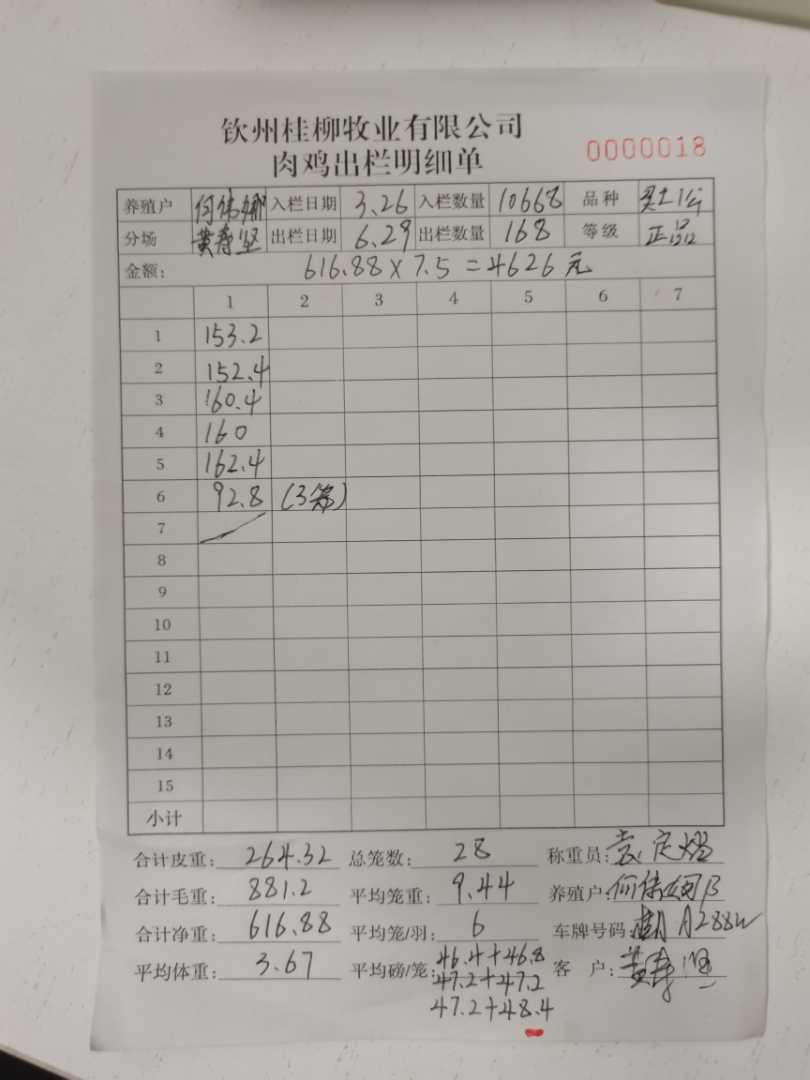 钦州桂柳牧业有限公司
肉鸡出栏明细单 0000018
养殖户 何伟娜 入栏日期 3.26 入栏数量 10668 品种
分场 黄寿坚 出栏日期 6.29 出栏数量 168 等级 正品
金额: 616.88×7.5=4626元
1 2 3 4 5 6 7
1 153.2
2 152.4
3 160.4
4 160
5 162.4
6 92.8 (3笼)
7
8
9
10
11
12
13
14
15
小计
合计皮重: 264.32 总笼数: 28 称重员:
合计毛重: 881.2 平均笼重: 9.44 养殖户:
合计净重: 616.88 平均笼/羽: 6 车牌号码:
平均体重: 3.67 平均磅/笼: 46.4+46.8 客 户: 黄寿坚
47.2+47.2
47.2+48.4